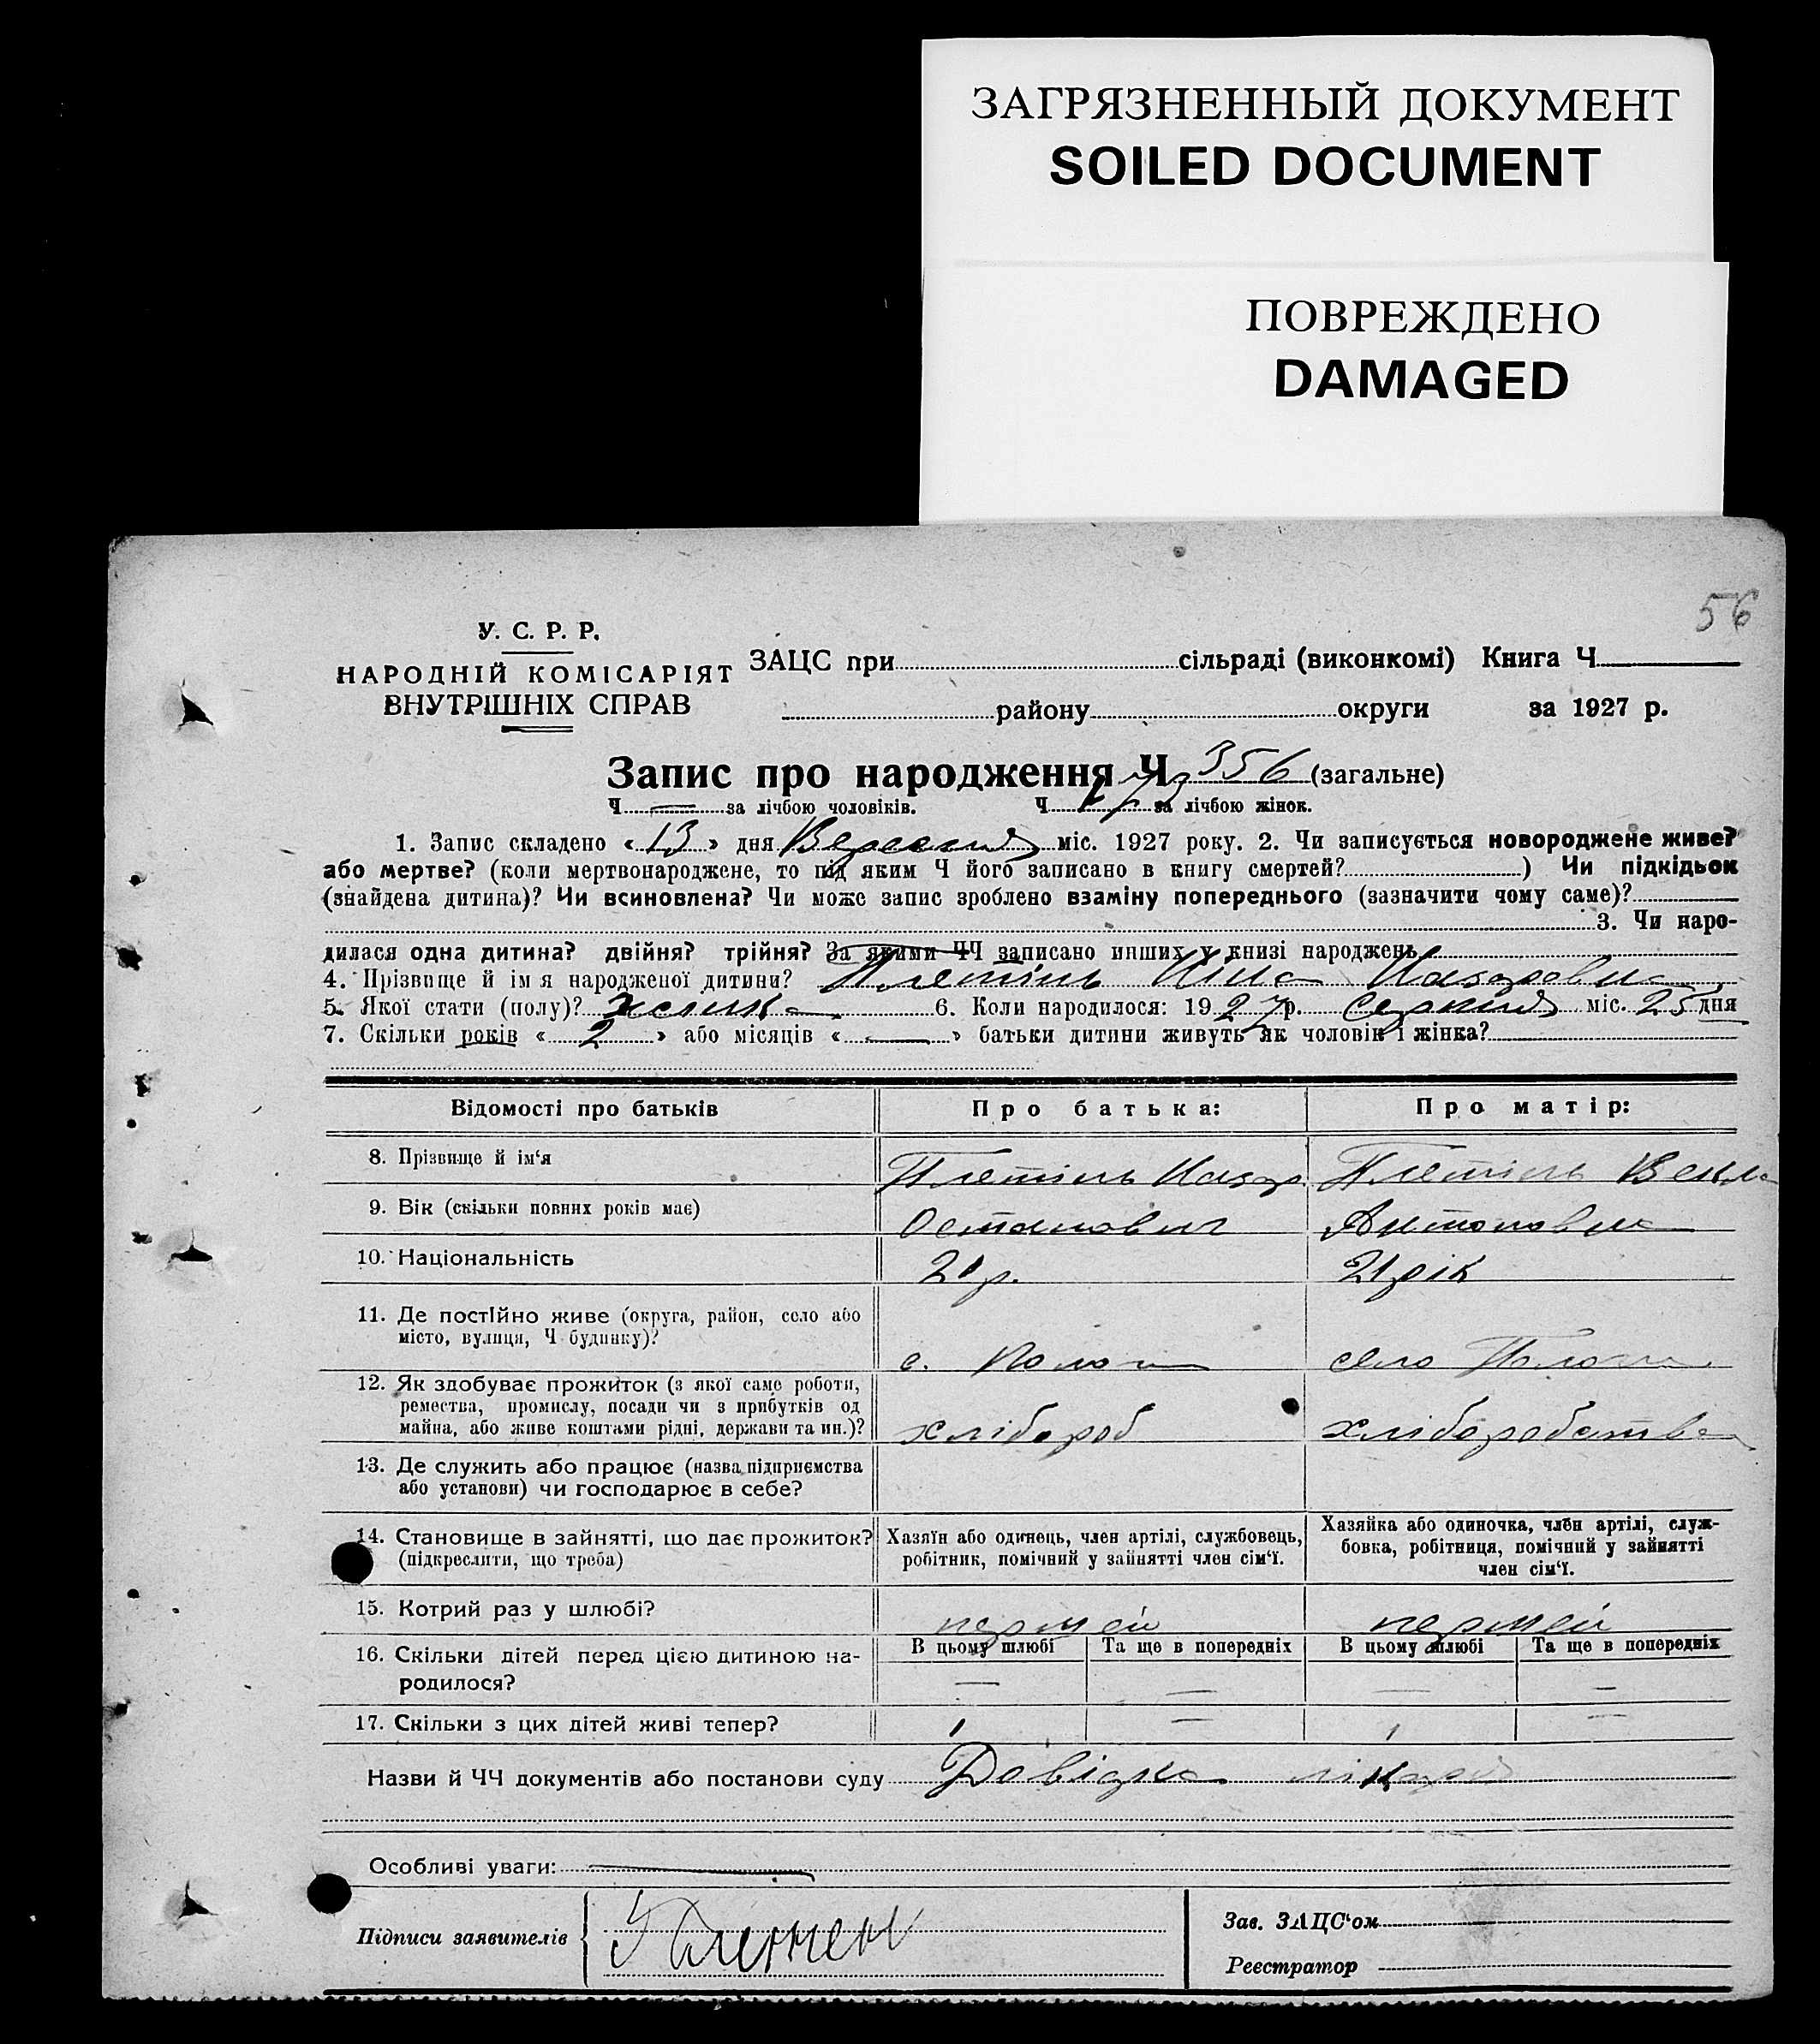 ЗАГРЯЗНЕННЫЙ ДОКУМЕНТ
SOILED DOCUMENT
ПОВРЕЖДЕНО
DAMAGED
56
У. С. Р. Р.
НАРОДНІЙ КОМІСАРІЯТ
ВНУТРІШНІХ СПРАВ
ЗАЦС при сільраді (виконкомі) Книга Ч
району округи за 1927 р.
Запис про народження Ч 356 (загальне)
Ч — за лічбою чоловіків. Ч 173 за лічбою жінок.
1. Запис складено « 13 » дня Вересня міс. 1927 року. 2. Чи записується новороджене живе?
або мертве? (коли мертвонароджене, то під яким Ч його записано в книгу смертей? ) Чи підкідьок
(знайдена дитина)? Чи всиновлена? Чи може запис зроблено взаміну попереднього (зазначити чому саме)?
3. Чи наро-
дилася одна дитина? двійня? трійня? За якими ЧЧ записано инших у книзі народжень
4. Прізвище й ім я народженої дитини? Плетінь Ніна Назаровна
5. Якої стати (полу)? жіноча 6. Коли народилося: 1927 р. серпня міс. 25 дня
7. Скільки років « 2 » або місяців « — » батьки дитини живуть як чоловік і жінка?
Відомості про батьків Про батька: Про матір:
8. Прізвище й ім‘я Плетінь Назар Плетінь Векла
9. Вік (скільки повних років має) Остапович Антоновна
10. Національність 21 р. 21 рік
11. Де постійно живе (округа, район, село або
місто, вулиця, Ч будинку)? с. Пологи село Пологи
12. Як здобуває прожиток (з якої саме роботи,
ремества, промислу, посади чи з прибутків од
майна, або живе коштами рідні, держави та ин.)? хлібороб хліборобство
13. Де служить або працює (назва підприємства
або установи) чи господарює в себе?
14. Становище в зайнятті, що дає прожиток?
(підкреслити, що треба)
Хазяїн або одинець, член артілі, службовець,
робітник, помічний у зайнятті член сім‘ї.
Хазяйка або одиночка, член артілі, служ-
бовка, робітниця, помічний у зайнятті
член сім‘ї.
15. Котрий раз у шлюбі? перший перший
16. Скільки дітей перед цією дитиною на-
родилося?
В цьому шлюбі Та ще в попередніх В цьому шлюбі Та ще в попередніх
— — — —
17. Скільки з цих дітей живі тепер? 1 — 1 —
Назви й ЧЧ документів або постанови суду Довідка лікаря
Особливі уваги: —
Підписи заявителів
Зав. ЗАЦС‘ом
Реєстратор